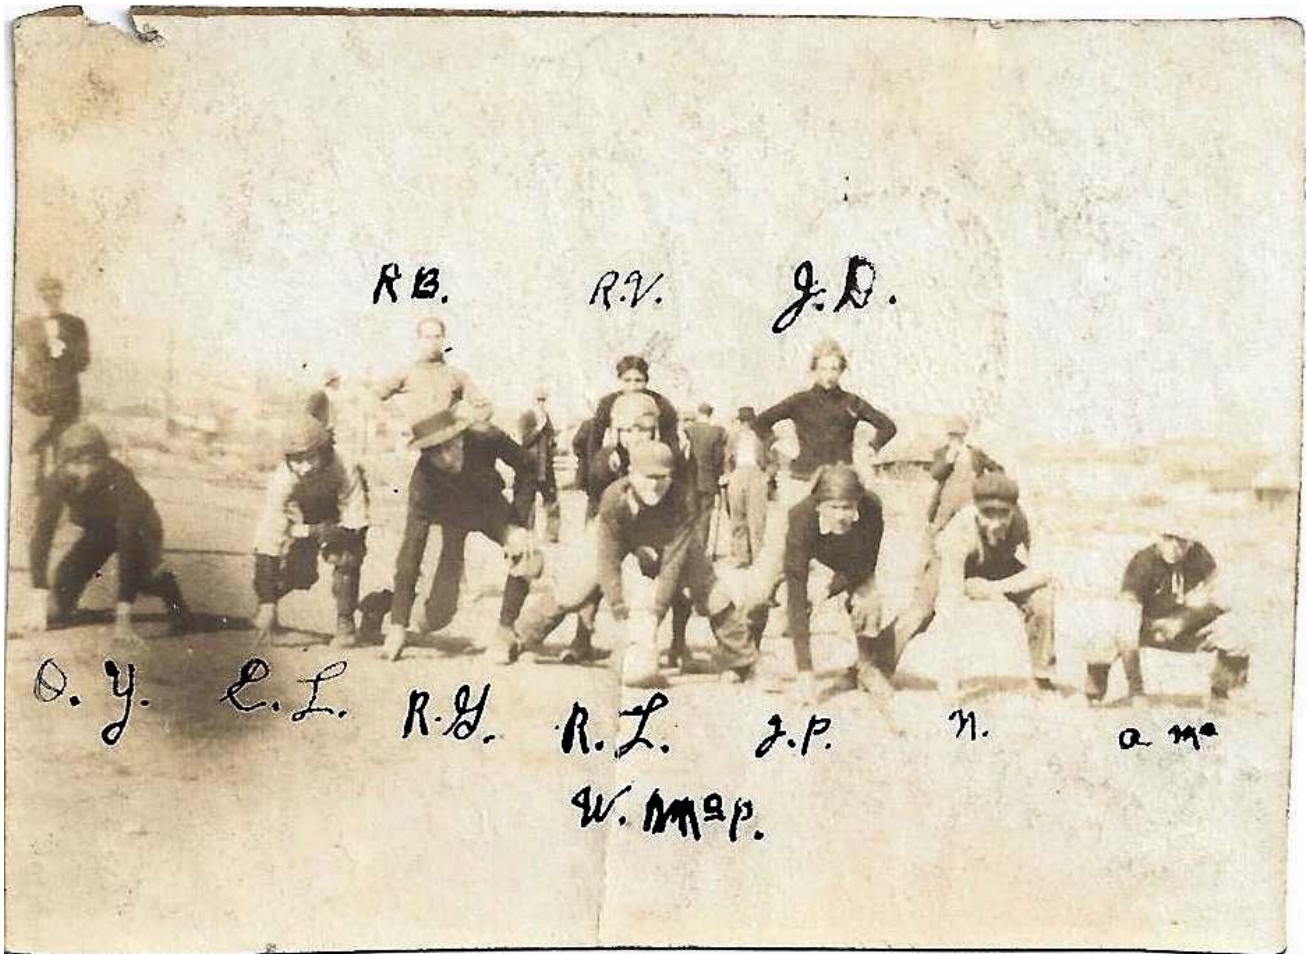 R B. R.V. J.D.
O.Y. C.L. R.Y. R.L. J.P. N. a mc
W.